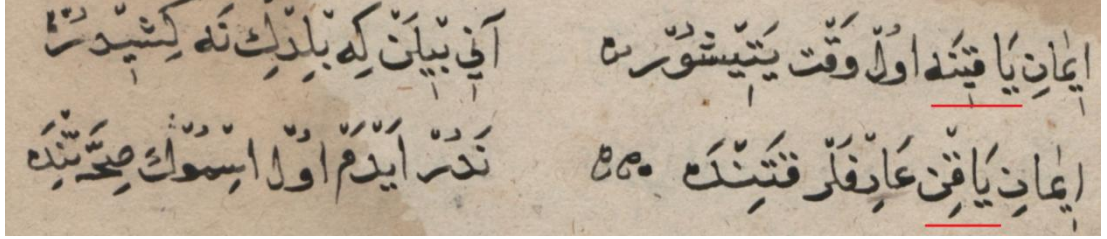 اِیمَانِ یَاقِیْنَه اوُلْ وَقْت یَتِیْشوُرْ آنِي بِیلَنْ كِه بِلْدِكْ نَه كِشِیْدُرْ
اِیمَانِ یَاقِنْ عَارِفْلَرْ قَتِنْدَه نَدُرْ اَیْدَمْ اوُلْ اسْمُوْكْ صِحَّتِنْدَه